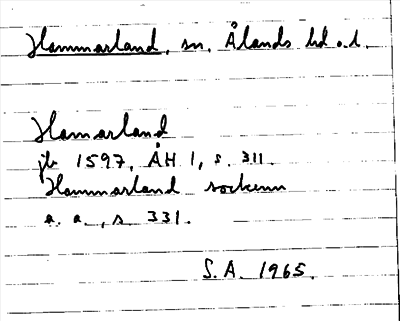 Hammarland, sn. Ålands hd o. l.
Hamarland
jb 1597, ÅH 1, s. 311.
Hammarland sockenn
a. a., s. 331.
S.A. 1965.